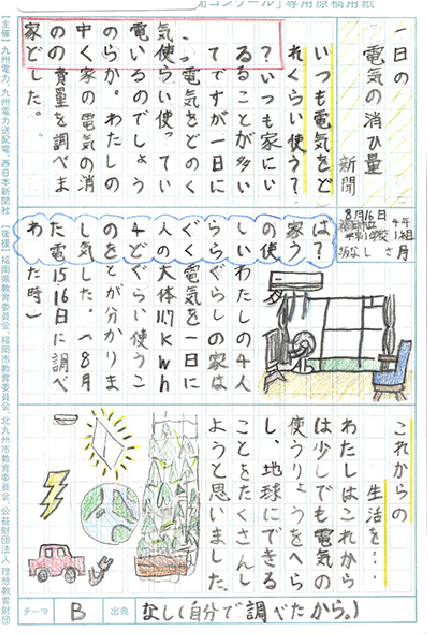 聞コンクール」専用原稿用紙
一日の
電気の消ひ量
新聞
いつも電気をど
れくらい使う？
？いつも家にい
るることが多い
てですが一日に
っ電気をどのく
気使らい使ってい
電いるのでしょう
のらか。わたしの
中く家の電気の消
のの費量を調べま
家どした。
8月16日
4年
1組
は？
家う
の使
しいわたしの4人
ららぐらしの家は
ぐく電気を一日に
人の大体11.7kwh
4どぐらい使うこ
のをとが分かりま
し気した。(8月
た電15.16日に調べ
わた時)
これからの
生活を…
わたしはこれから
は少しでも電気の
使うりょうをへら
し、地球にできる
ことをたくさんし
ようと思いました。
テーマ B 出典 なし(自分で調べたから。)
【主催】九州電力、九州電力送配電、西日本新聞社 【後援】福岡県教育委員会、福岡市教育委員会、北九州市教育委員会、公益財団法人 理想教育財団